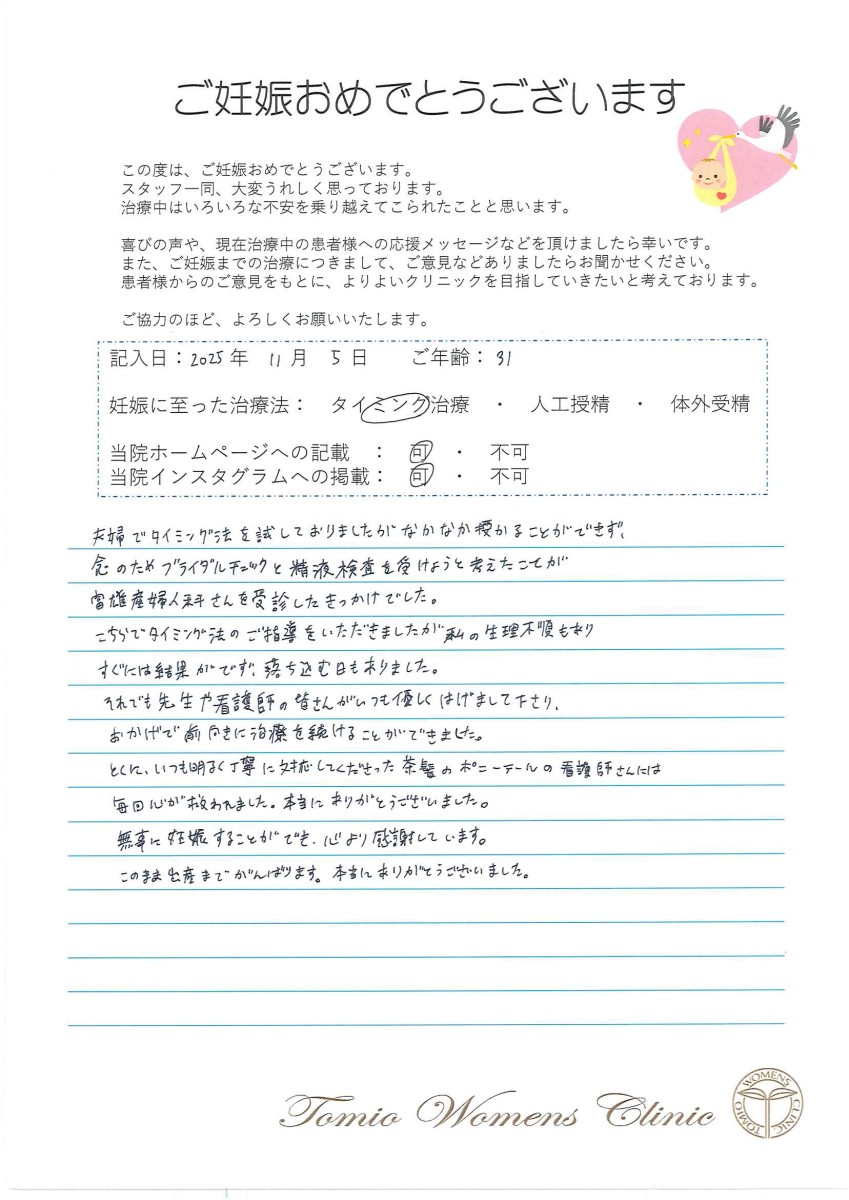 ご妊娠おめでとうございます
この度は、ご妊娠おめでとうございます。
スタッフ一同、大変うれしく思っております。
治療中はいろいろな不安を乗り越えてこられたことと思います。
喜びの声や、現在治療中の患者様への応援メッセージなどを頂けましたら幸いです。
また、ご妊娠までの治療につきまして、ご意見などありましたらお聞かせください。
患者様からのご意見をもとに、よりよいクリニックを目指していきたいと考えております。
ご協力のほど、よろしくお願いいたします。
記入日：2025年 11月 5日 ご年齢：31
妊娠に至った治療法： タイミング治療 ・ 人工授精 ・ 体外受精
当院ホームページへの記載 ： 可 ・ 不可
当院インスタグラムへの掲載： 可 ・ 不可
夫婦でタイミング法を試しておりましたがなかなか授かることができず、
念のためブライダルチェックと精液検査を受けようと考えたことが
富雄産婦人科さんを受診したきっかけでした。
こちらでタイミング法のご指導をいただきましたが私の生理不順もあり
すぐには結果がでず、落ち込む日もありました。
それでも先生や看護師の皆さんがいつも優しくはげまして下さり、
おかげで前向きに治療を続けることができました。
とくに、いつも明るく丁寧に対応してくださった茶髪のポニーテールの看護師さんには
毎回心が救われました。本当にありがとうございました。
無事に妊娠することができ、心より感謝しています。
このまま出産までがんばります。本当にありがとうございました。
Tomio Womens Clinic
TOMIO WOMENS CLINIC